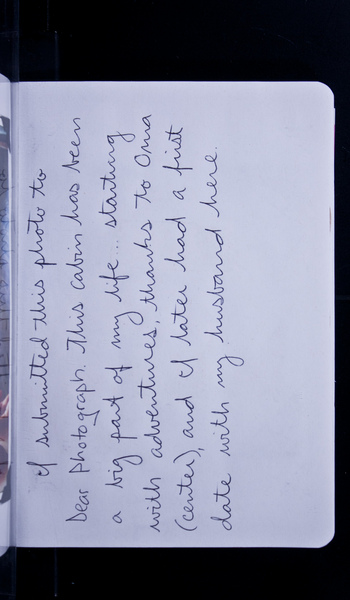 I submitted this photo to
Dear Photograph. This cabin has been
a big part of my life... starting
with adventures, thanks to Oma
(center), and I later had a first
date with my husband here.